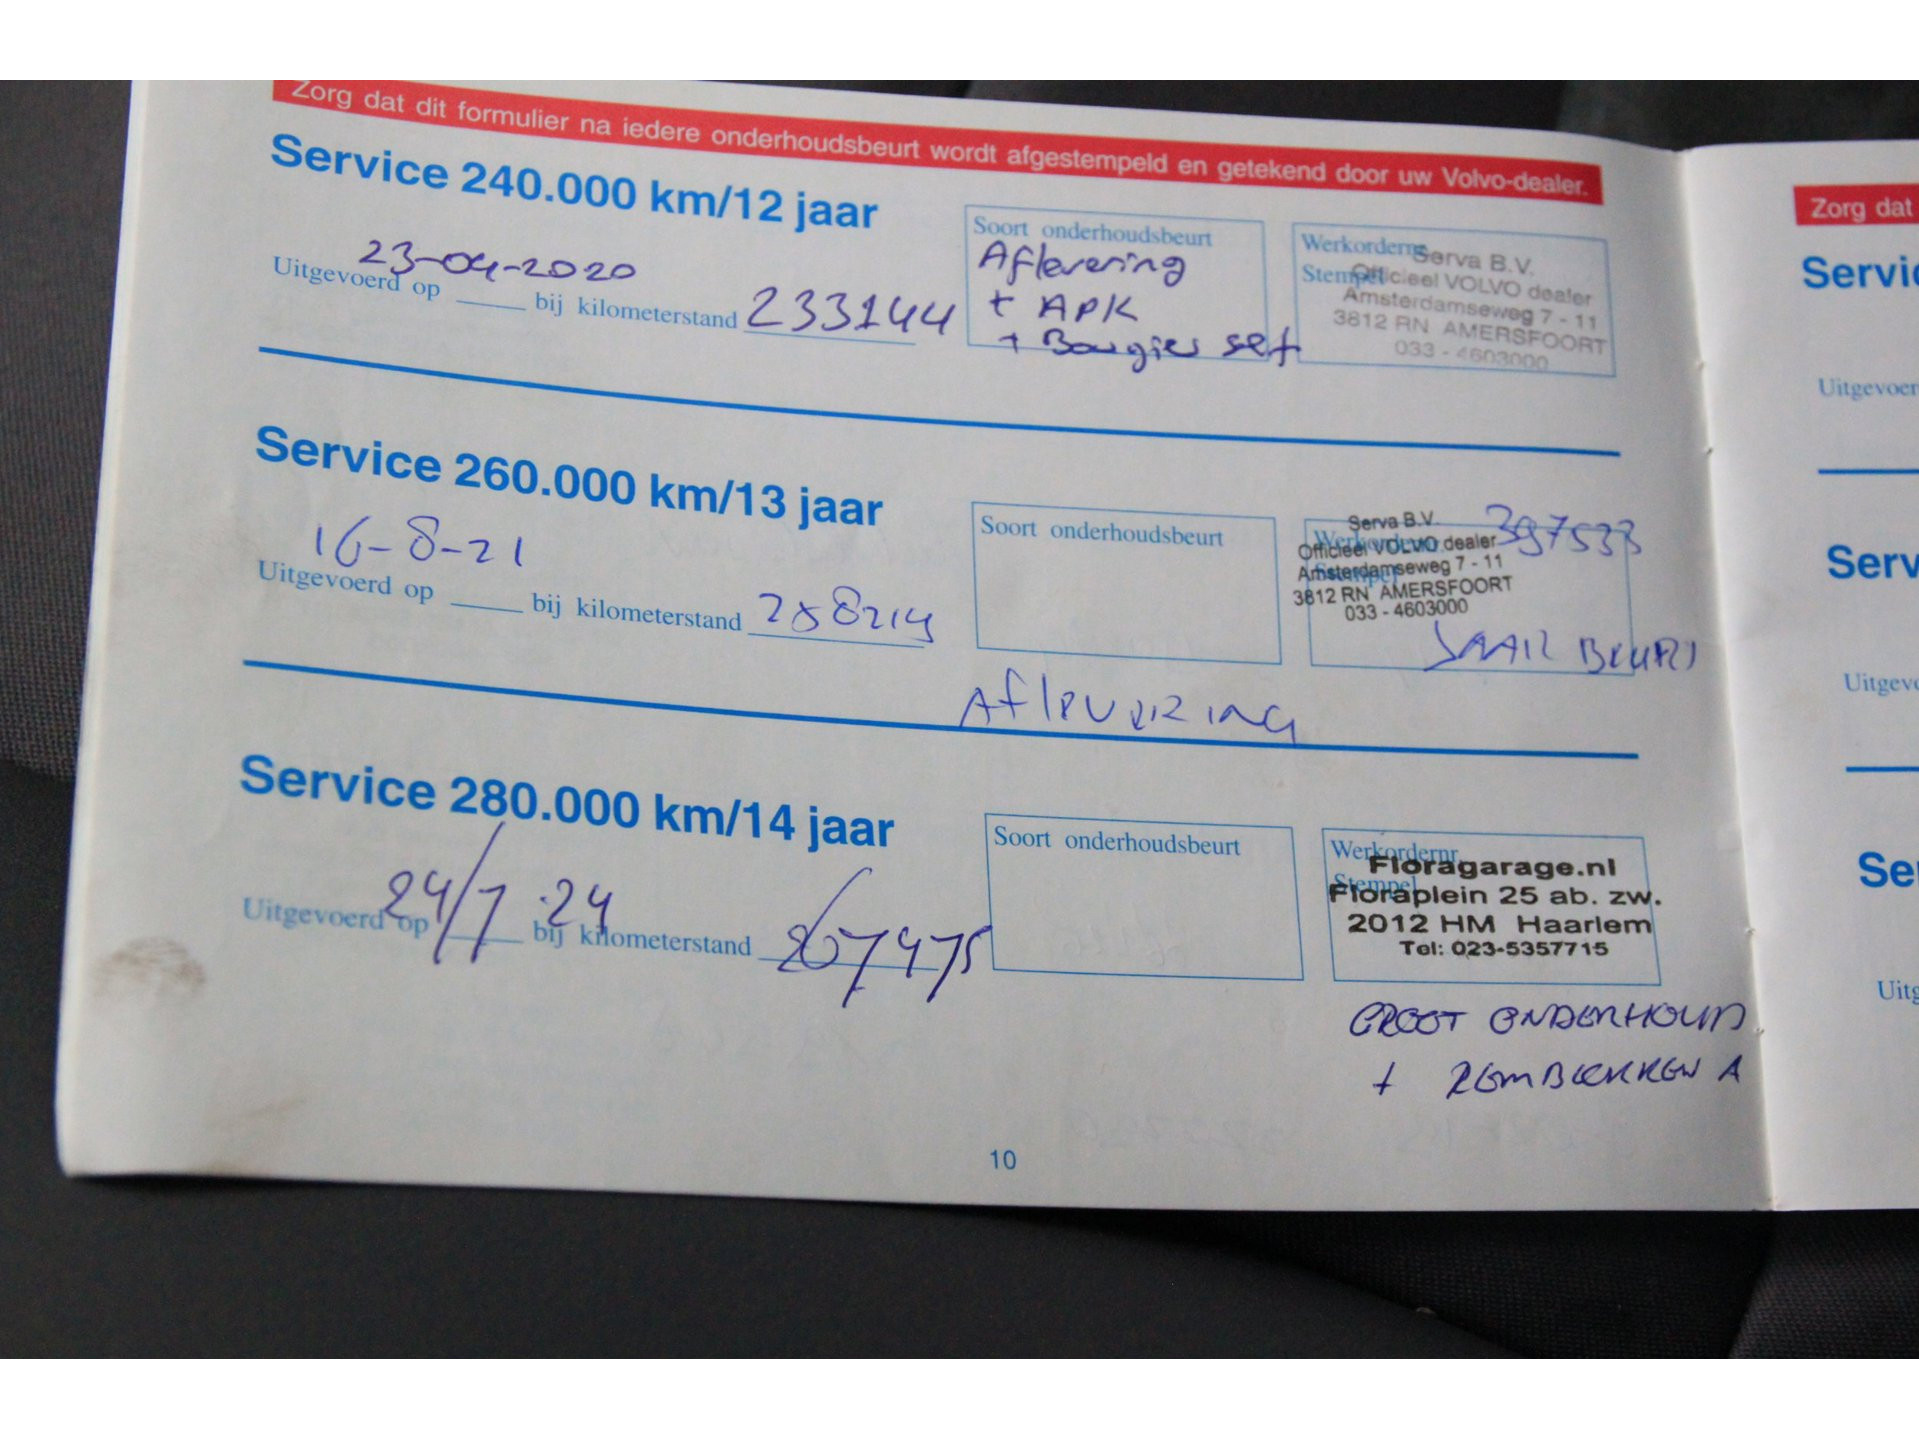 Zorg dat dit formulier na iedere onderhoudsbeurt wordt afgestempeld en getekend door uw Volvo-dealer.
Service 240.000 km/12 jaar
Uitgevoerd op 23-04-2020 bij kilometerstand 233144
Soort onderhoudsbeurt
Aflevering
+ APK
+ Bougies set
Werkordernr
Stempel
Serva B.V.
Officieel VOLVO dealer
Amsterdamseweg 7 - 11
3812 RN AMERSFOORT
033 - 4603000
Service 260.000 km/13 jaar
Uitgevoerd op 16-8-21 bij kilometerstand
Soort onderhoudsbeurt
Aflevering
Werkordernr.
Stempel
Serva B.V.
Officieel VOLVO dealer
Amsterdamseweg 7 - 11
3812 RN AMERSFOORT
033 - 4603000
397533
JAAR BEURT
Service 280.000 km/14 jaar
Uitgevoerd op 24/7 24 bij kilometerstand 267475
Soort onderhoudsbeurt
Werkordernr.
Stempel
Floragarage.nl
Floraplein 25 ab. zw.
2012 HM Haarlem
Tel: 023-5357715
GROOT ONDERHOUD
+ REMBLOKKEN A
10
Zorg dat
Servic
Uitgevoer
Serv
Uitgevo
Se
Uitg